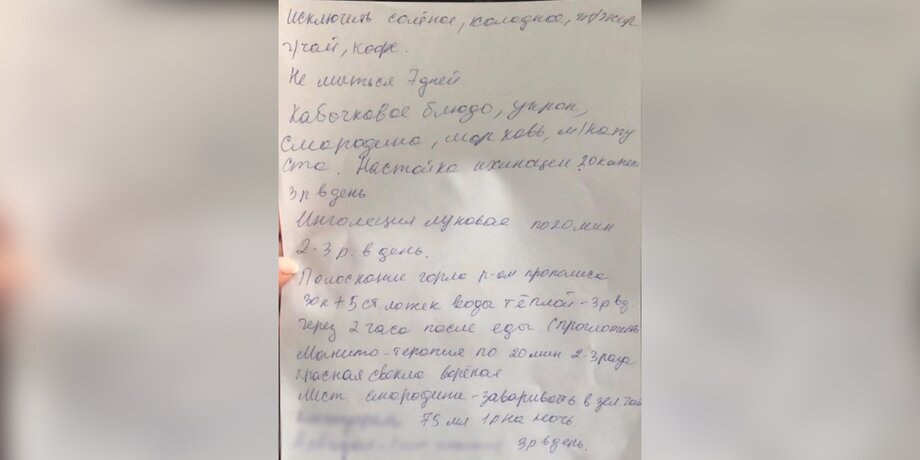 Исключить солёное, холодное,
ч/чай, кофе.
Не мыться 7 дней.
Кабочковое блюдо, укроп,
Смородина, морковь, м/капу
ста. Настойка ихинацеи 20капел
3р в день
Инголеция луковая по 20 мин
2-3 р. в день.
Полоскание горла р-ом прополиса
30к + 5 ст. ложек воды тёплой - 3р вд.
через 2 часа после еды (проглотить
Манито-терапия по 20 мин 2-3 раза
красная свекла вореная
Лист смородины - заваривать в зел чай
75 мл 1р на ночь
3р в день.